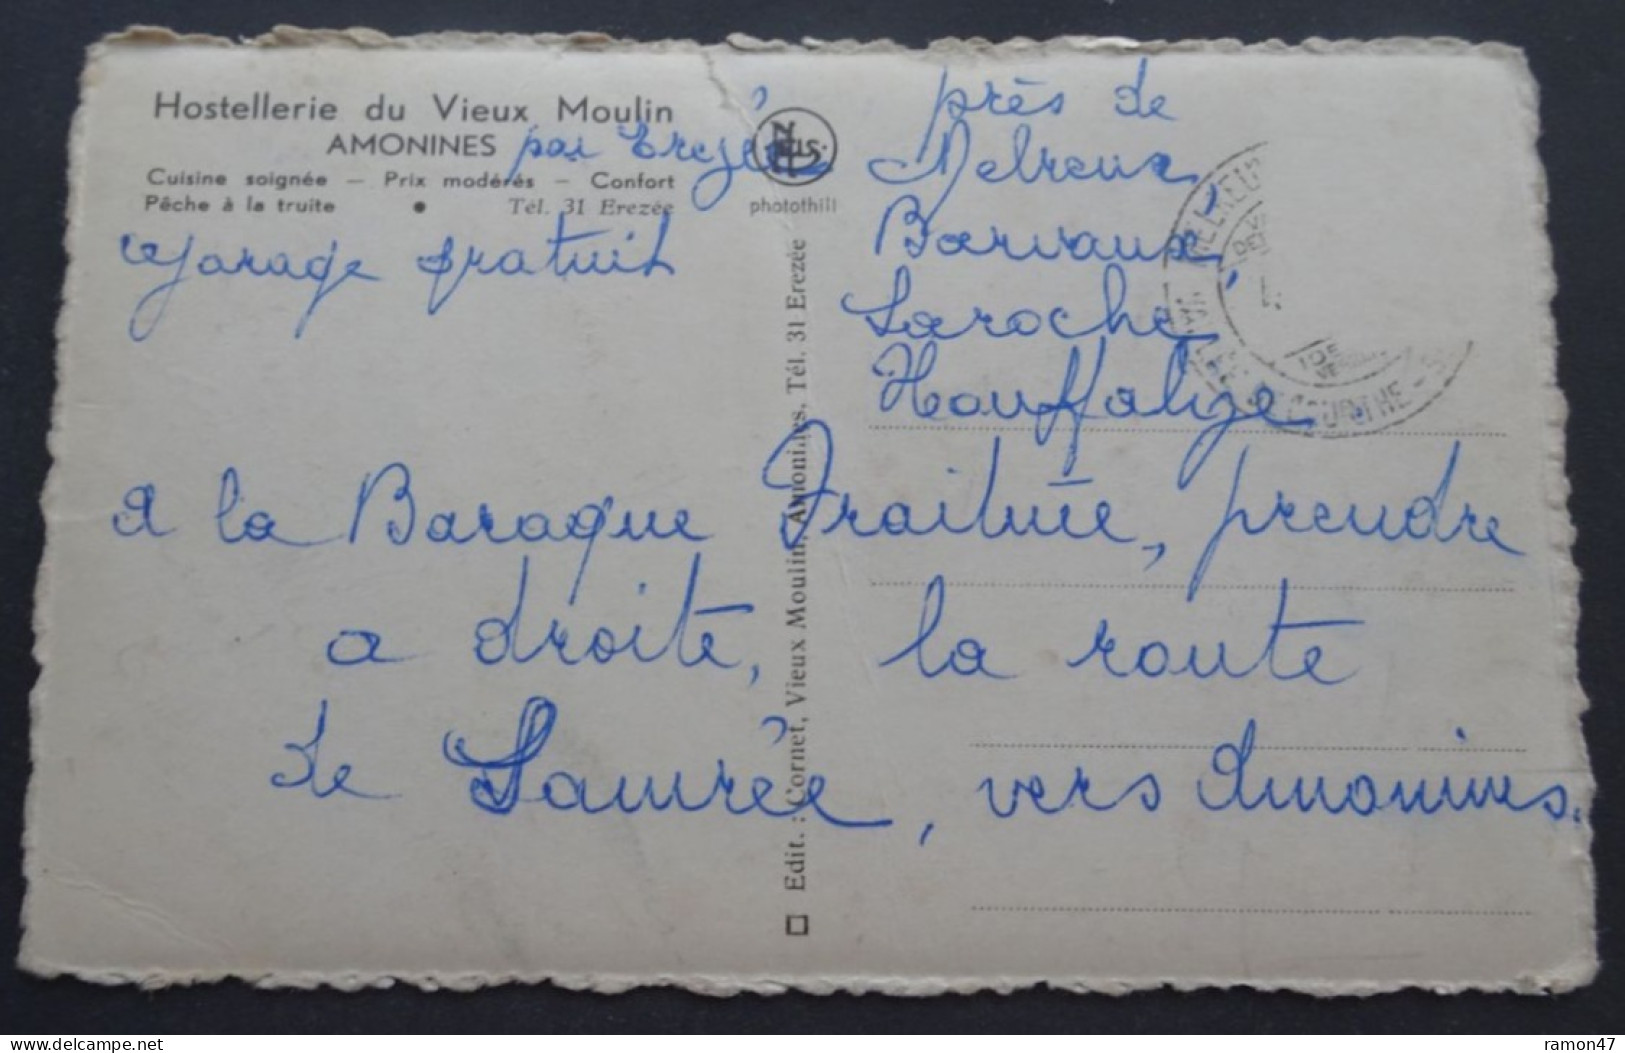 Hostellerie du Vieux Moulin
AMONINES par Erezée
Cuisine soignée — Prix modérés — Confort
Pêche à la truite • Tél. 31 Erezée
garage gratuit
NELS
photothill
près de
Melreux,
Barvaux,
Laroche,
Houffalize
à la Baraque Fraiture, prendre
a droite, la route
de Samrée, vers Amonines.
Edit. : Cornet, Vieux Moulin, Amonines, Tél. 31 Erezée
delcampe.net
ramon47